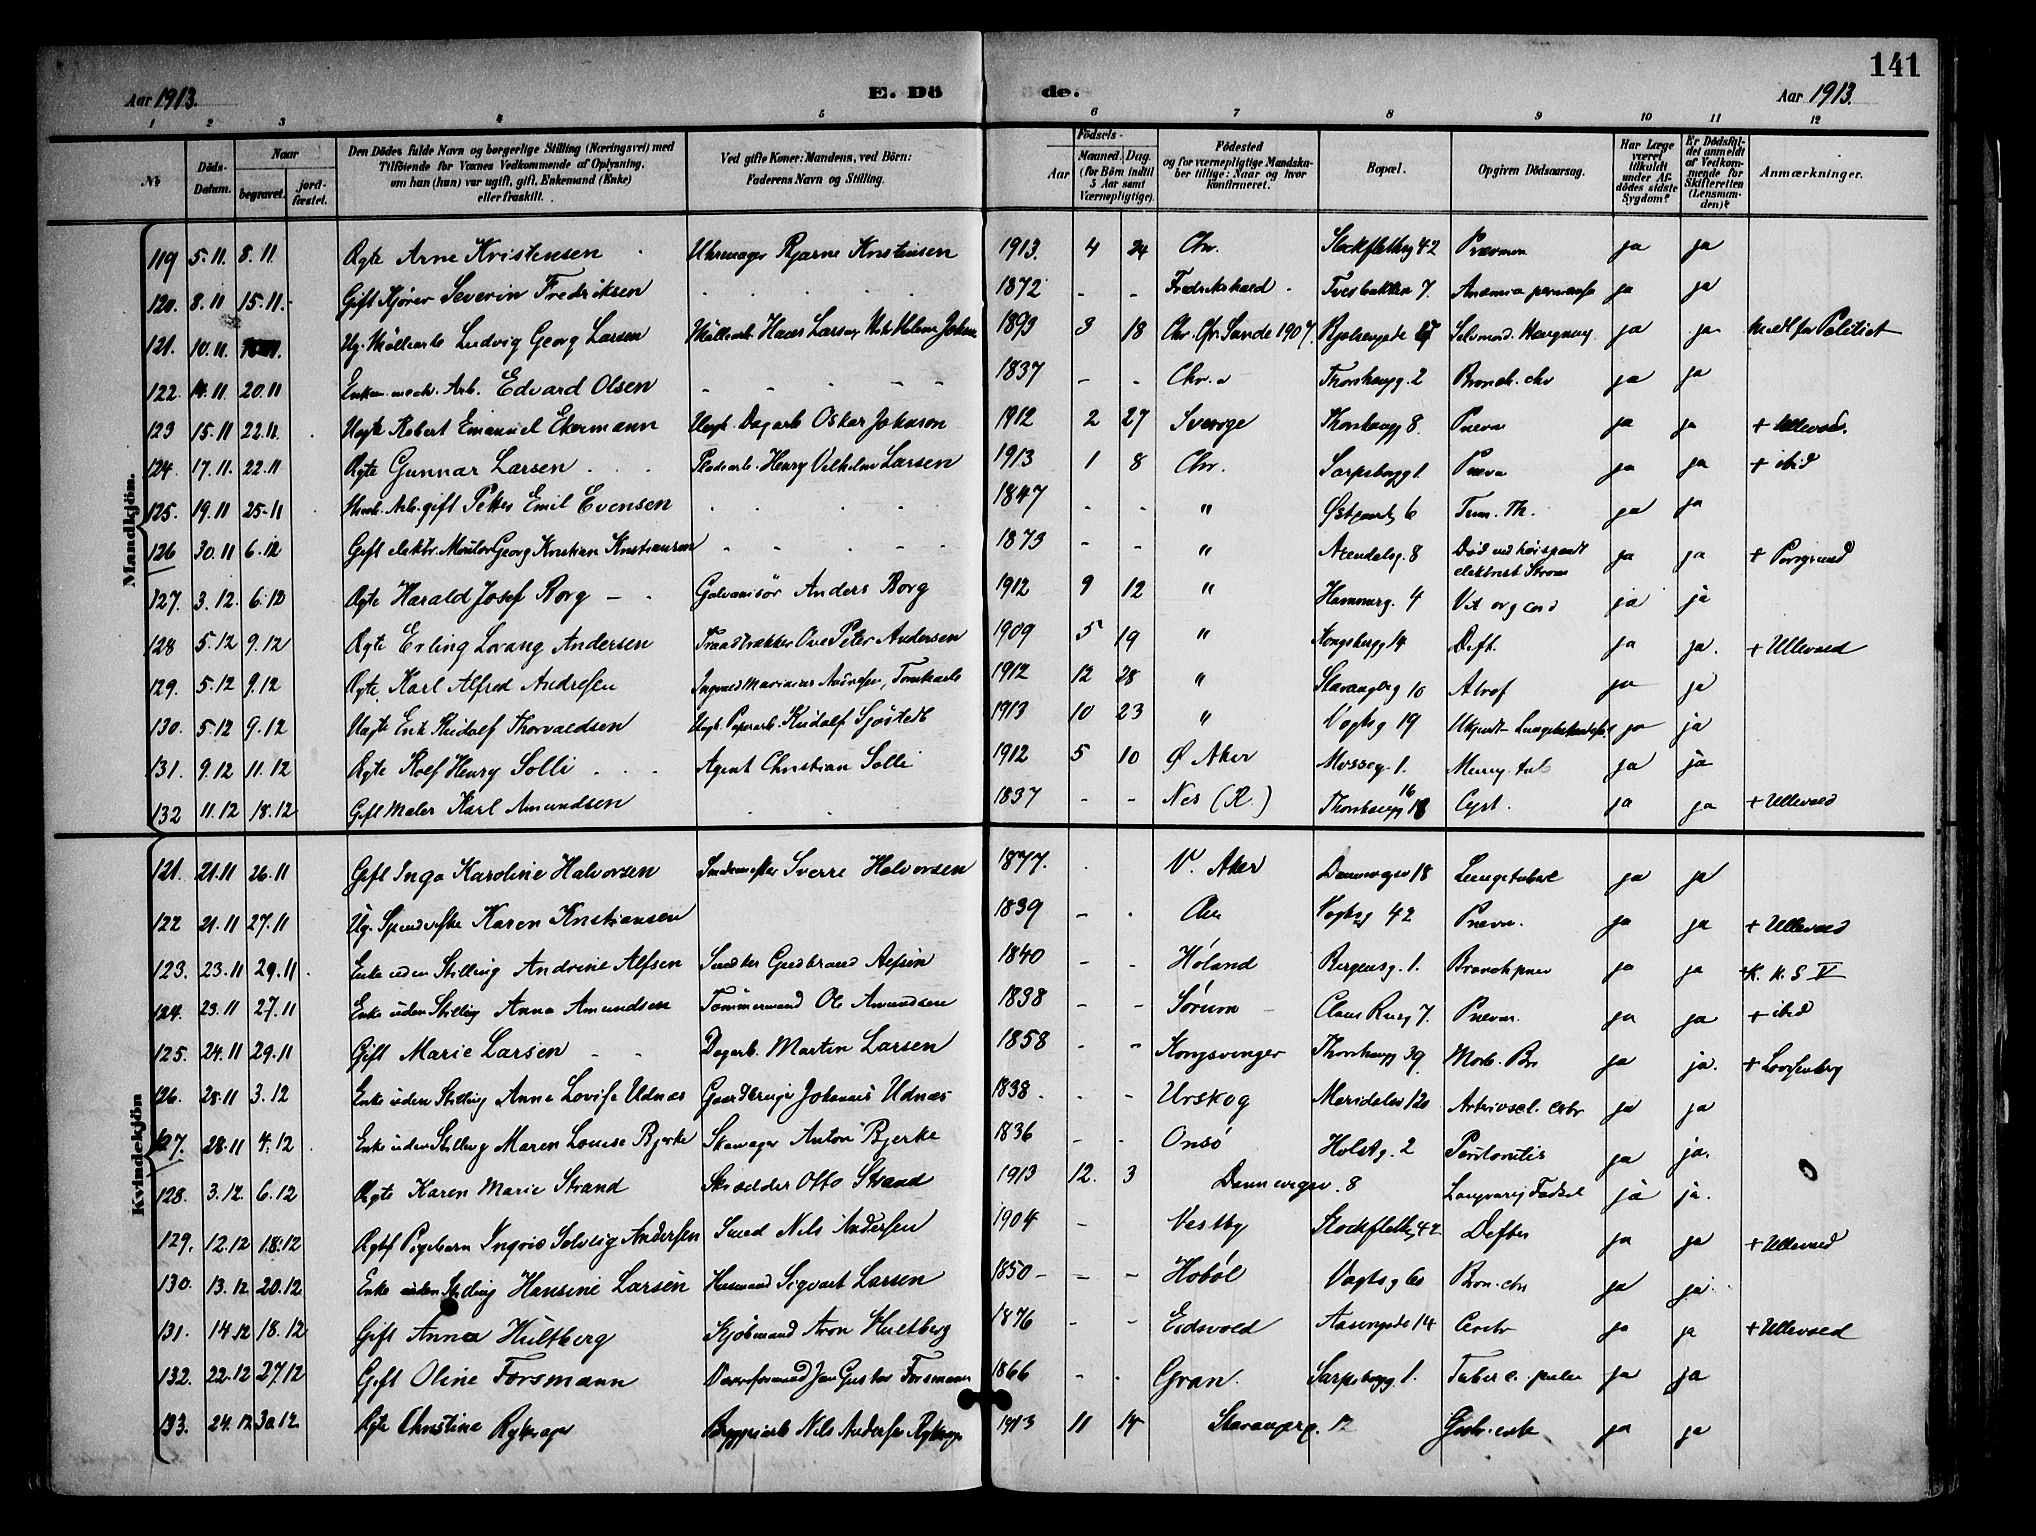 141
Aar 1913. E. Dö de. Aar 1913.
1 2 3 4 5 6 7 8 9 10 11 12
No Döds-Datum. Naar begravet. jord-fæstet. Den Dödes fulde Navn og borgerlige Stilling (Næringsvei) med Tilföiende for Voxnes Vedkommende af Oplysning, om han (hun) var ugift, gift, Enkemand (Enke) eller fraskilt. Ved gifte Koner: Mandens, ved Börn: Faderens Navn og Stilling. Födsels- Aar Maaned. Dag. (for Börn indtil 5 Aar samt Værnepligtige). Födested og for værnepligtige Mandskaber tillige: Naar og hvor konfirmeret. Bopæl. Opgiven Dödsaarsag. Har Læge været tilkaldt under Afdödes sidste Sygdom? Er Dödsfaldet anmeldt af Vedkommende for Skifteretten (Lensmanden)? Anmærkninger.
Mandkjön.
119 5.11. 8.11. Ægte Arne Kristensen Uhrmager Bjarne Kristensen 1913. 4 24 Chr. Stockflethsg 42 Pnevmon ja ja
120. 8.11 15.11. Gift Kjører Severin Fredriksen 1872 - - Fredrikshald Tvetbakken 7. Anæmia perniciosa ja ja
121. 10.11. Ug. Møllearb Ludvig Georg Larsen Møllearb. Hans Larsen 1893 3 18 Chr. Gr. Sande 1907. Selvmord. Hængning ja ja Meldt for Politiet
122. 14.11 20.11 Enkem. mech. Arb. Edvard Olsen 1837 - - Chr. Thorshaugg. 2 Bronch. chr ja ja
123 15.11 22.11. Uægte Robert Emanuel Ekermann Uægt. Dagarb Oskar Johnson 1912 2 27 Sverige Thorshaugg 8. Pnevm ja ja + Ullevaal.
124. 17.11. 22.11 Ægte Gunnar Larsen Pladearb. Henry Vilhelm Larsen 1913 1 8 Chr. Sarpsborgg 1 Pnevm ja ja + ibid
125. 19.11 25.11 Arb. gift Petter Emil Evensen 1847 - - " Østgaardsg 6 Tum. Th. ja ja
126 30.11 6.12 Gift elektr. Montør Georg Kristian Kristiansen 1873 - - " Arendalsg. 8 Død ved høispændt elektrisk Strøm ja ja + Porsgrund
127. 3.12. 6.12 Ægte Harald Josef Borg Galvanisör Anders Borg 1912 9 12 " Hammerg. 4 Vit org cord ja ja
128 5.12 9.12 Ægte Erling Lorang Andersen Traadtrækker Ove Peter Andersen 1909 5 19 " Kongsbergg 14 Deft. ja ja. + Ullevaal
129. 5.12 9.12 Ægte Karl Alfred Andresen Ingvald Marinius Andresen, 1912 12 28 " Stavangerg 10 Atrof ja ja
130. 5.12 9.12 Uægte Erik Rudolf Thorvaldsen Uægt. Papirarb. Rudolf Sjöstedt 1913 10 23 " Vogtsg 19 Ukjendt - ja ja
131. 9.12 11.12 Ægte Rolf Henry Solli Agent Christian Solli 1912 5 10 Ø Aker Mosseg. 1. Mening. tub ja ja
132 11.12 18.12 Gift Maler Karl Amundsen 1837 - - Nes (R.) Thorshaugg 16 Cyst. ja ja + Ullevaal
Kvindekjön
121. 21.11 26.11 Gift Inga Karoline Halvorsen Sverre Halvorsen 1877. V. Aker Dannevigsv 18 Lungetuberk ja ja
122 21.11 27.11 Ug. Karen Kristiansen 1839 - - Vogtsg 42 Pnevm. ja ja + Ullevaal
123. 23.11 29.11. Enke uden Stilling Andrine Alfsen Snedker Gudbrand Alfsen 1840 - - Høland Bergensg. 1. Bronchpnev ja ja K. K. S V
124. 23.11 27.11 Enke uden Stilling Anna Amundsen Tømmermand Ole Amundsen 1838 - - Sørum Claus Riisg 7. Pnevm. ja ja + ibid
125. 24.11 29.11 Gift Marie Larsen Dagarb. Martin Larsen 1858 - - Kongsvinger Thorshaugg 39 Morb. Bri ja ja. + Lovisenberg
126. 28.11 3.12 Enke uden Stilling Anna Lovise Udnæs Gaardbruger Johannes Udnæs 1838. - - Urskog Maridalsv 120 Arterioscl. cerebr ja ja
127. 28.11 4.12 Enke uden Stilling Maren Louise Bjerke Skomager Anton Bjerke 1836 - - Onsø Holstg. 2 Peritonitis ja ja.
128. 3.12. 6.12 Ægte Karen Marie Strand Skrædder Otto Strand 1913 12. 3 Dannevigsv. 8 Langvarig Fødsel ja ja.
129. 12.12 18.12 Ægtef Pigebarn Ingrid Solveig Andersen Smed Nils Andersen 1904 - Vestby Stockflethsg 42 Defter ja ja + Ullevaal
130. 13.12 20.12 Enke uden Stilling Hansine Larsen Husmand Sigvart Larsen 1850 - - - Hobøl Vogtsg 60 Bron. chr ja ja.
131. 14.12 18.12 Gift Anna Hultberg Kjøbmand Aron Hultberg 1876 - - Eidsvold Aasengade 14 ja ja + Ullevaal
132. 22.12 27.12 Gift Oline Forsmann Gustav Forsmann 1866 - - Gran. Sarpsborgg. 1. Tuberc. pulm ja ja
133. 24.12 30.12 Ægte Christine Ryhager Nils Andersen Ryhager 1913 11 14 Stavangerg. 12 ja ja